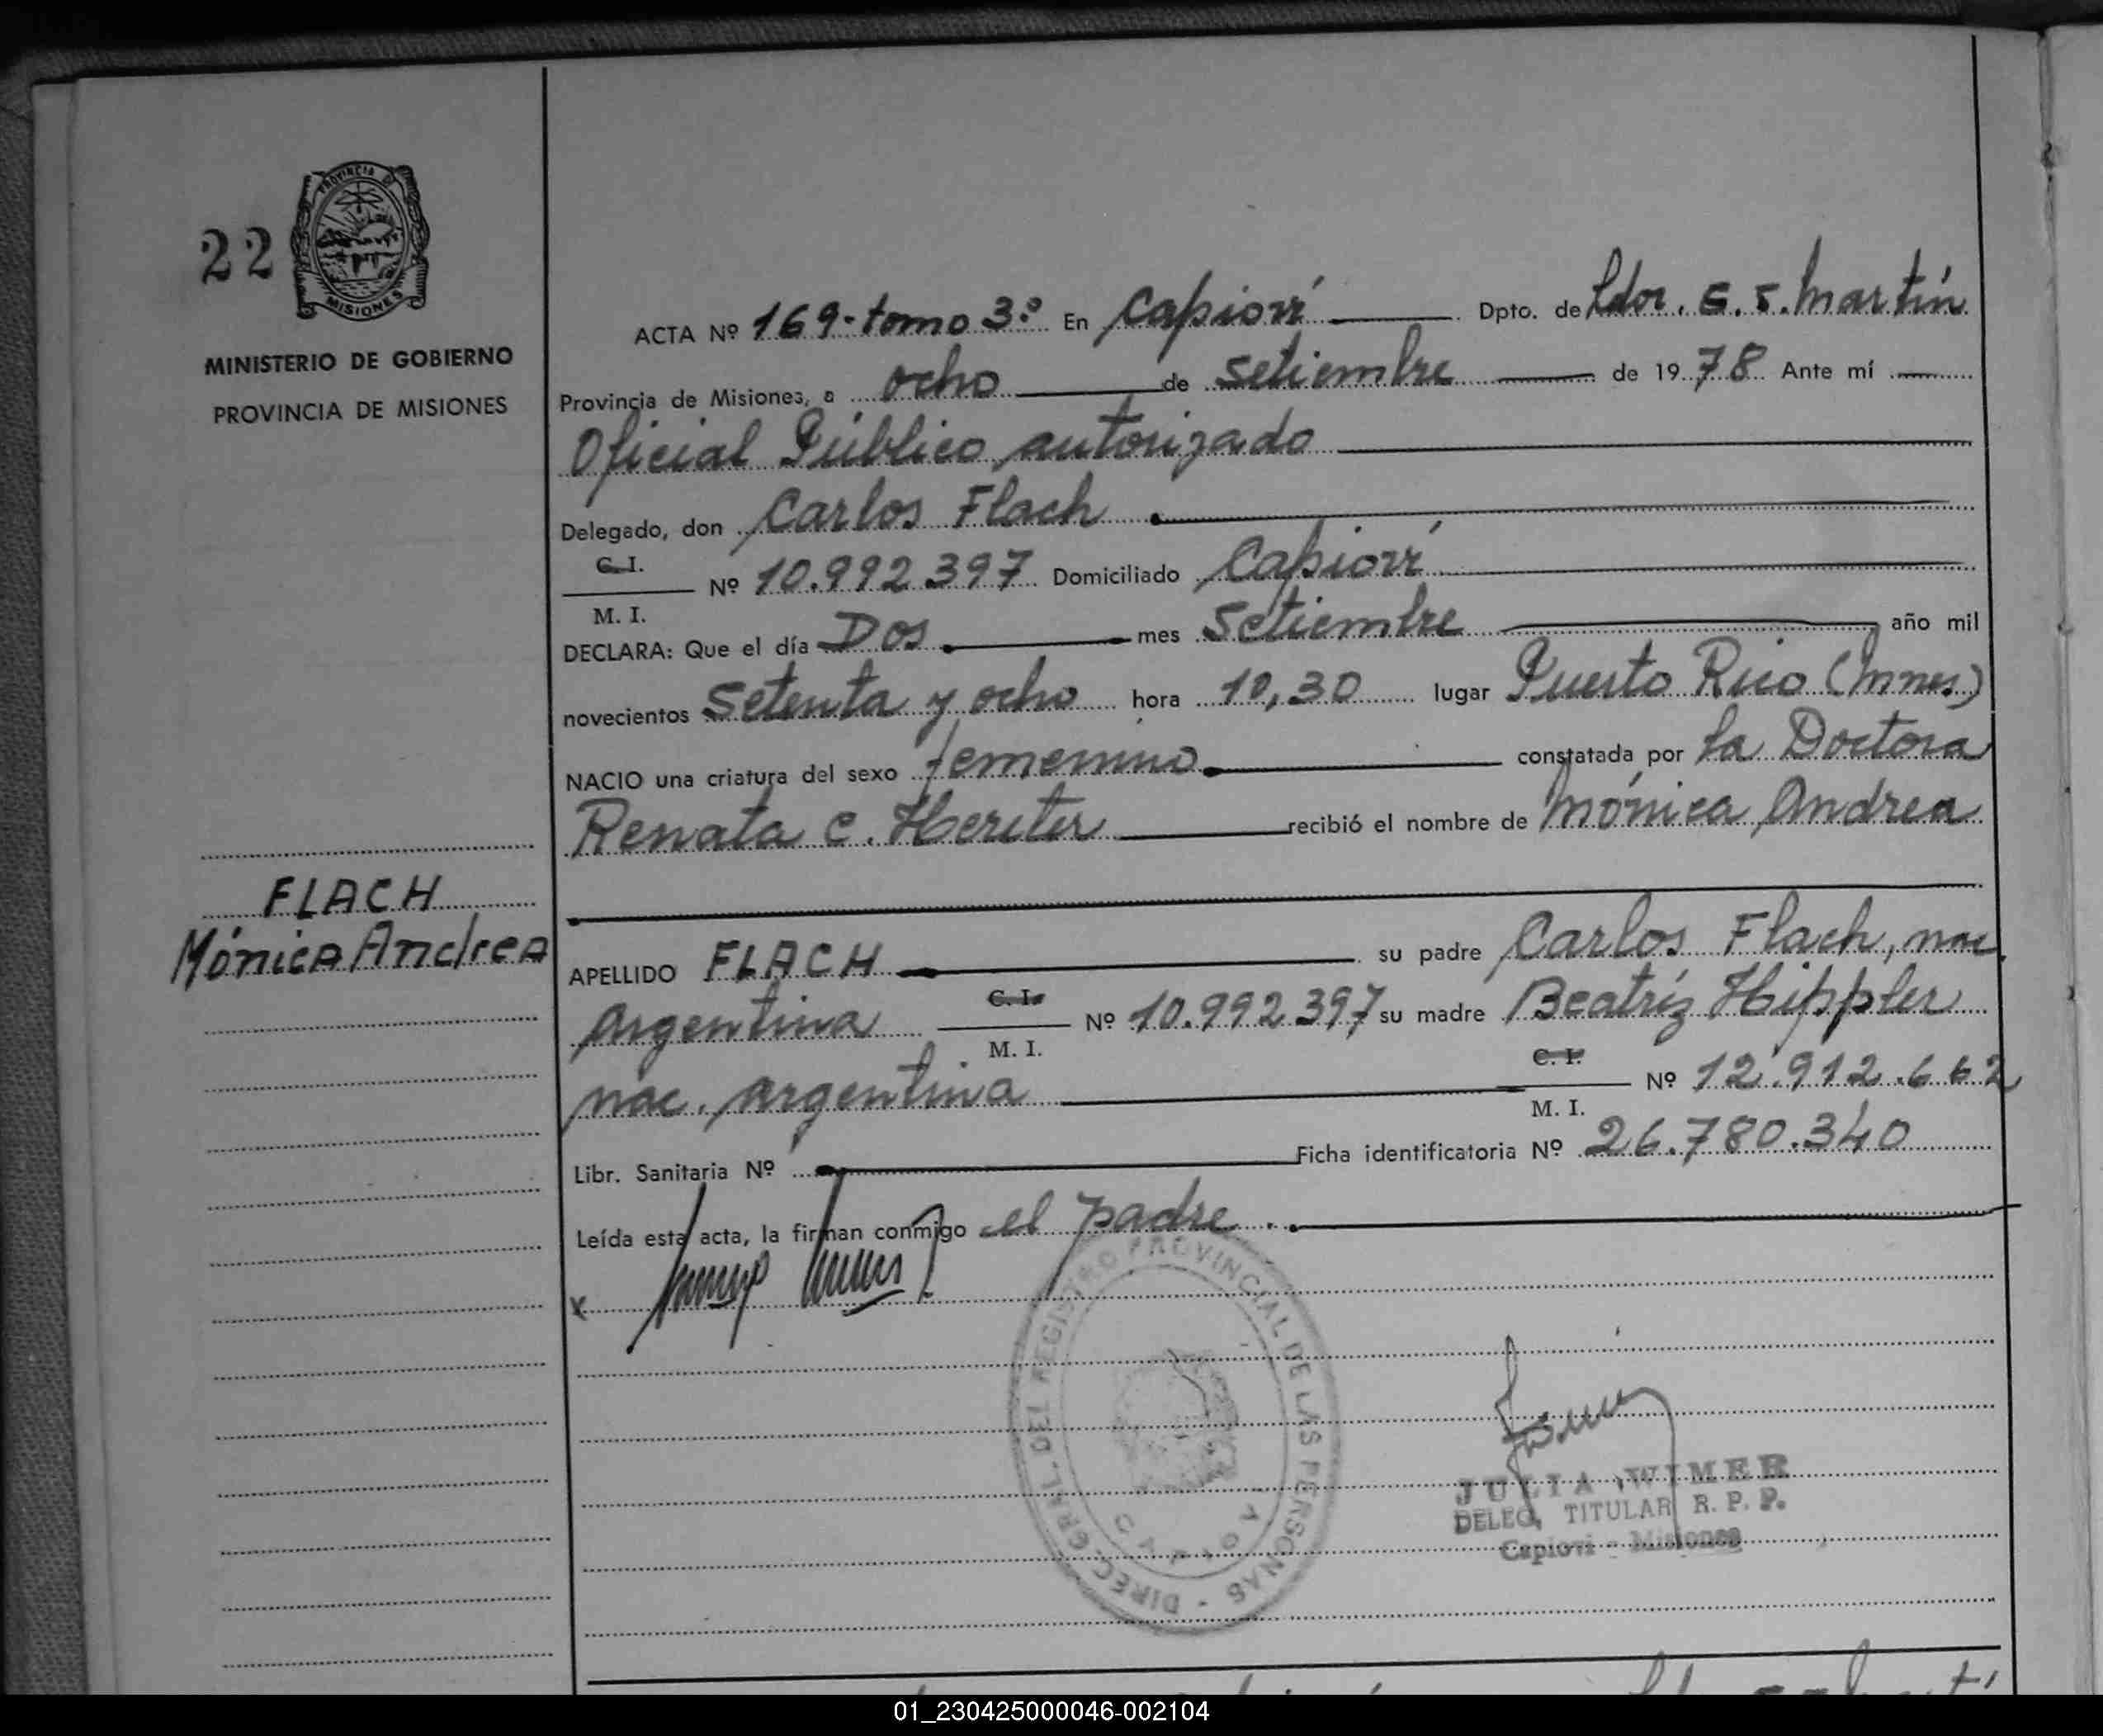 22
PROVINCIA D
MISIONES
MINISTERIO DE GOBIERNO
PROVINCIA DE MISIONES
ACTA Nº 169-tomo 3º En Capioví Dpto. de Ldor. G. S. Martín
Provincia de Misiones, a ocho de setiembre de 1978 Ante mí
Oficial Público autorizado
Delegado, don Carlos Flach
C. I.
Nº 10.992.397 Domiciliado Capioví
M. I.
DECLARA: Que el día Dos mes Setiembre año mil
novecientos Setenta y ocho hora 10,30 lugar Puerto Rico (Mnes)
NACIO una criatura del sexo femenino constatada por la Doctora
Renata C. recibió el nombre de Mónica Andrea
FLACH
Mónica Andrea
APELLIDO FLACH su padre Carlos Flach, nac.
argentina C. I. Nº 10.992.397 su madre Beatríz Hippler
M. I.
nac. argentina C. I. Nº 12.912.662
M. I.
Libr. Sanitaria Nº Ficha identificatoria Nº 26.780.340
Leída esta acta, la firman conmigo el padre
x
DIREC. GRAL. DEL REGISTRO PROVINCIAL DE LAS PERSONAS
CAPIOVY
JULIA WIMER
DELEG. TITULAR R. P. P.
Capiovi - Misiones
01_230425000046-002104